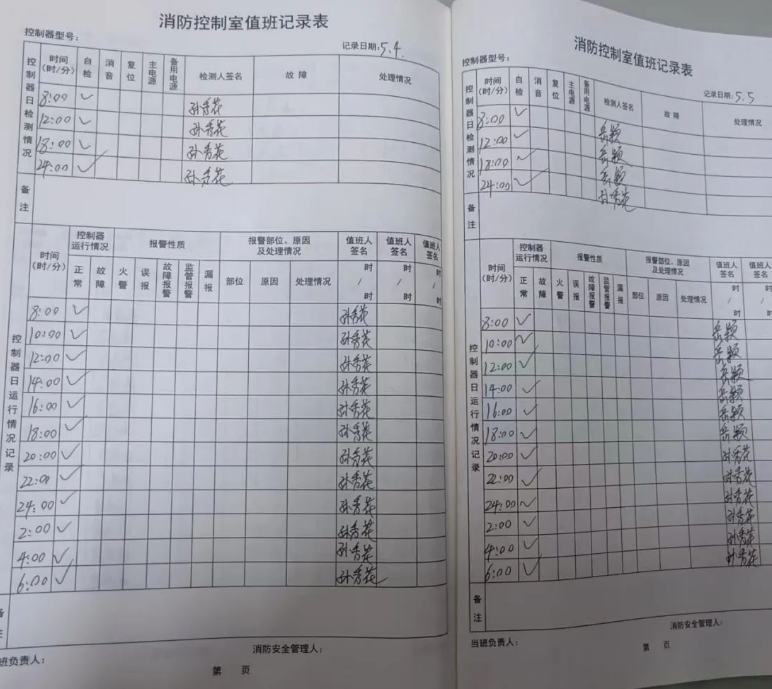 消防控制室值班记录表
控制器型号：
记录日期：5.4.
控制器日检测情况 时间(时/分) 自检 消音 复位 主电源 备用电源 检测人签名 故障 处理情况
8:00 ✓ 孙秀花
12:00 ✓ 孙秀花
18:00 ✓ 孙秀花
24:00 ✓ 孙秀花
备注
控制器日运行情况记录 时间(时/分) 控制器运行情况 报警性质 报警部位、原因及处理情况 值班人签名 值班人签名 值班人签名
正常 故障 火警 误报 故障报警 监管报警 漏报 部位 原因 处理情况 时/时 时/时 时/时
8:00 ✓ 孙秀花
10:00 ✓ 孙秀花
12:00 ✓ 孙秀花
14:00 ✓ 孙秀花
16:00 ✓ 孙秀花
18:00 ✓ 孙秀花
20:00 ✓ 孙秀花
22:00 ✓ 孙秀花
24:00 ✓ 孙秀花
2:00 ✓ 孙秀花
4:00 ✓ 孙秀花
6:00 ✓ 孙秀花
备注
班负责人：
消防安全管理人：
第 页
消防控制室值班记录表
控制器型号：
记录日期：5.5
控制器日检测情况 时间(时/分) 自检 消音 复位 主电源 备用电源 检测人签名 故障 处理情况
8:00 ✓ 岳颖
12:00 ✓ 岳颖
18:00 ✓ 岳颖
24:00 ✓ 孙秀花
备注
控制器日运行情况记录 时间(时/分) 控制器运行情况 报警性质 报警部位、原因及处理情况 值班人签名 值班人签名
正常 故障 火警 误报 故障报警 监管报警 漏报 部位 原因 处理情况 时/时 时/时
8:00 ✓ 岳颖
10:00 ✓ 岳颖
12:00 ✓ 岳颖
14:00 ✓ 岳颖
16:00 ✓ 岳颖
18:00 ✓ 岳颖
20:00 ✓ 孙秀花
22:00 ✓ 孙秀花
24:00 ✓ 孙秀花
2:00 ✓ 孙秀花
4:00 ✓ 孙秀花
6:00 ✓ 孙秀花
备注
当班负责人：
消防安全管理人：
第 页